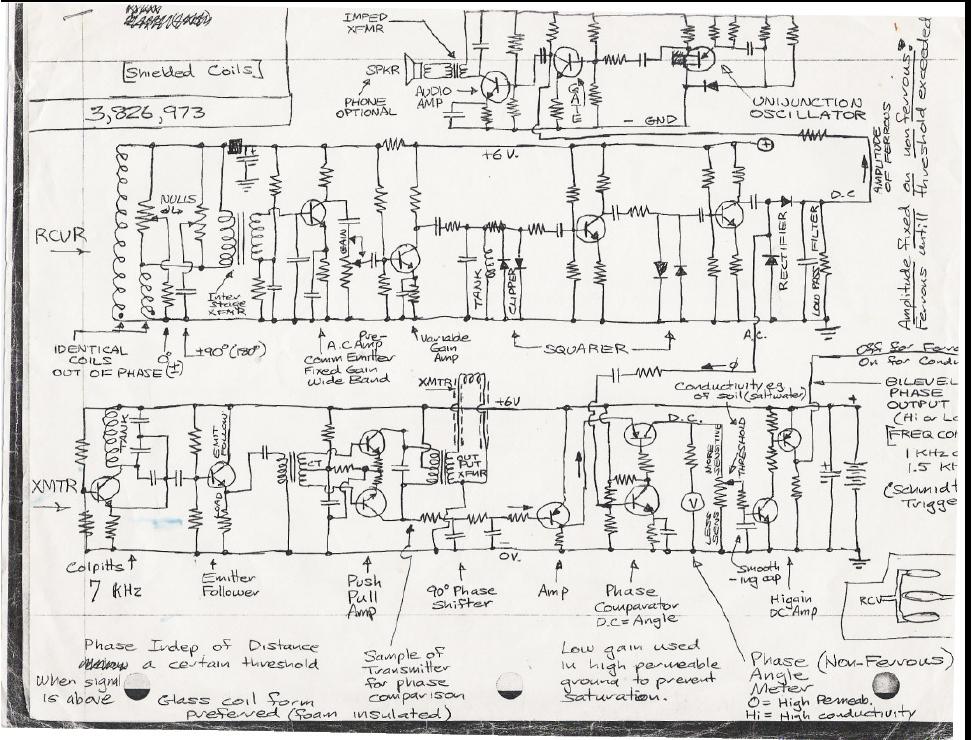 [Shielded Coils]
3,826,973
IMPED
XFMR
SPKR
PHONE
OPTIONAL
AUDIO
AMP
GATE
- GND
UNIJUNCTION
OSCILLATOR
AMPLITUDE
OF FERROUS
Amplitude fixed on nonferrous.
Ferrous untill threshold exceeded
RCVR
NULLS
+
+6 V.
+
D.C
Inter
Stage
XFMR
GAIN
TANK
CLIPPER
RECTIFIER
LOW PASS FILTER
IDENTICAL
COILS
OUT OF PHASE
0° (±)
±90° (180°)
Pre-
A.C. Amp
Comm Emitter
Fixed Gain
Wide Band
Variable
Gain
Amp
SQUARER
A.C.
XMTR
+6V
ϕ
Conductivity eg.
of soil (saltwater)
Off for Ferro
On for Condu
BILEVEL
PHASE
OUTPUT
(Hi or Lo
[FREQ CON
1 KHz
1.5 KH
(Schmidt
Trigge
XMTR
TANK
EMIT
FOLLOW
LOAD
CT
OUT
PUT
XFMR
D.C.
MORE
SENSITIVE
THRESHOLD
LESS
SENS
V
+
+
0V.
Colpitts
7 KHz
Emitter
Follower
Push
Pull
Amp
90° Phase
Shifter
Amp
Phase
Comparator
D.C = Angle
Smooth
-ing cap
Higain
DC Amp
RCV
Phase Indep of Distance
a certain threshold
When signal
is above
Glass coil form
preferred (foam insulated)
Sample of
Transmitter
for phase
comparison
Low gain used
in high permeable
ground to prevent
saturation.
Phase (Non-Ferrous)
Angle
Meter
0 = High Permeab.
Hi = High conductivity